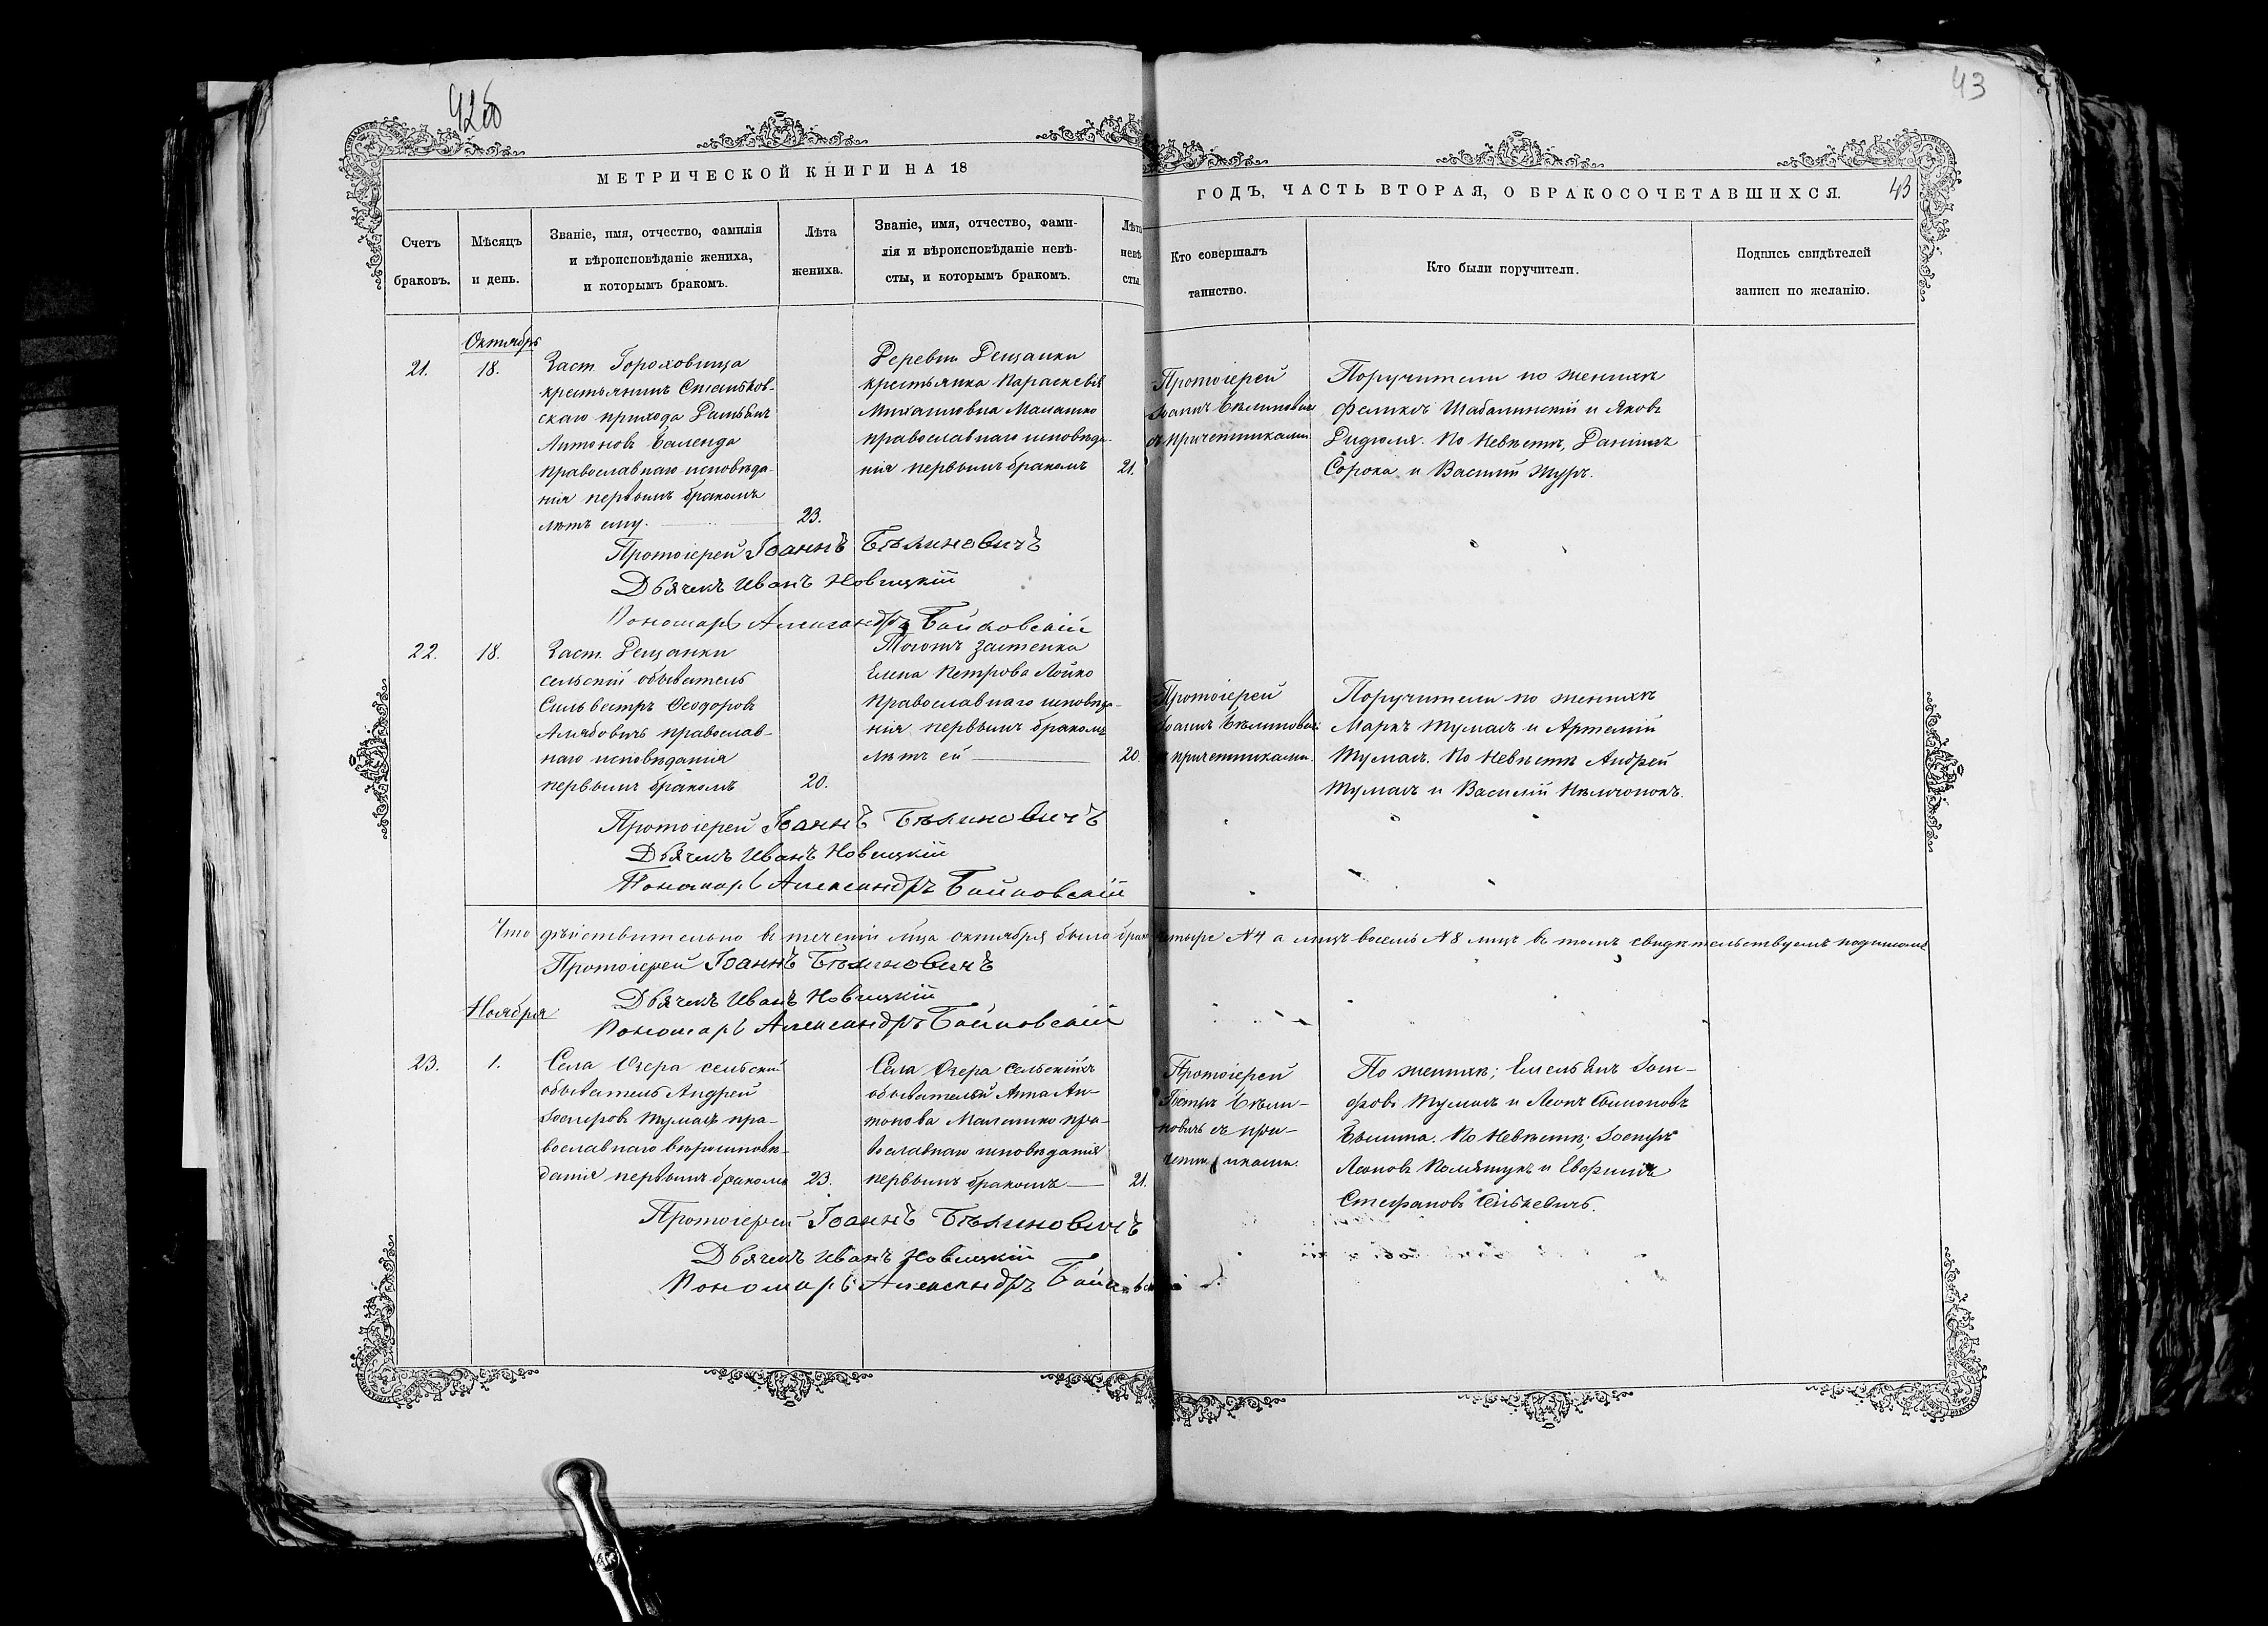 926
43
МЕТРИЧЕСКОЙ КНИГИ НА 18
ГОДЪ, ЧАСТЬ ВТОРАЯ, О БРАКОСОЧЕТАВШИХСЯ.
43
Счетъ
браковъ.
Мѣсяцъ
и день.
Званіе, имя, отчество, фамилія
и вѣроисповѣданіе жениха,
и которымъ бракомъ.
Лѣта
жениха.
Званіе, имя, отчество, фами-
лія и вѣроисповѣданіе невѣ-
сты, и которымъ бракомъ.
Лѣта
невѣ-
сты.
Кто совершалъ
таинство.
Кто были поручители.
Подпись свидѣтелей
записи по желанію.
Октябрь
21.
18.
Заст. Гороховища
крестьянинъ
скаго прихода
Антоновъ Баленда
православнаго исповѣда-
нія первымъ бракомъ
лѣтъ ему.
23.
Деревни Рещанки
крестьянка Параскевія
Михаиловна Малашко
православнаго исповѣда-
нія первымъ бракомъ
21.
Протоіерей
Іоаннъ Бѣлиновичъ
съ причетниками.
Поручители по женихѣ
Феликсъ Шабалинскій и Яковъ
По невѣстѣ, Даніилъ
Сорока и Василій Журъ.
Протоіерей Іоаннъ Бѣлиновичъ
Дьячекъ Иванъ Новицкій
Пономарь Александръ Байковскій
22.
18.
Заст. Рещанки
сельскій обыватель
Сильвестръ Ѳеодоровъ
православ-
наго исповѣданія
первымъ бракомъ
20.
Тогожъ застенка
Елена Петрова Лойко
Православнаго исповѣда-
нія первымъ бракомъ
лѣтъ ей
20.
Протоіерей
Іоаннъ Бѣлиновичъ
причетниками.
Поручители по женихѣ
Маркъ Тумашъ и Артемій
Тумашъ. По невѣстѣ Андрей
Тумашъ и Василій
Протоіерей Іоаннъ Бѣлиновичъ
Дьячекъ Иванъ Новицкій
Пономарь Александръ Байковскій
Что дѣйствительно въ теченіи м-ца октября было браковъ четыре №4 а лицъ восемь №8 лицъ въ томъ свидѣтельствуемъ подписомъ
Протоіерей Іоаннъ Бѣлиновичъ
Дьячекъ Иванъ Новицкій
Пономарь Александръ Байковскій
Ноября
23.
1.
Села Озера сельскій
обыватель Андрей
Іосифовъ Тумашъ пра-
вославнаго вѣроисповѣ-
данія первымъ бракомъ
23.
Села Озера сельскихъ
обывателей Анна Ан-
тонова Малашко пра-
вославнаго исповѣданія
первымъ бракомъ
21.
Протоіерей
Бѣли-
новичъ съ при-
четниками.
По женихѣ; Емельянъ Іоси-
фовъ Тумашъ и Леонъ
По невѣстѣ; Іосифъ
Леоновъ и Евфимъ
Стефановъ
Протоіерей Іоаннъ Бѣлиновичъ
Дьячекъ Иванъ Новицкій
Пономарь Александръ Байковскій